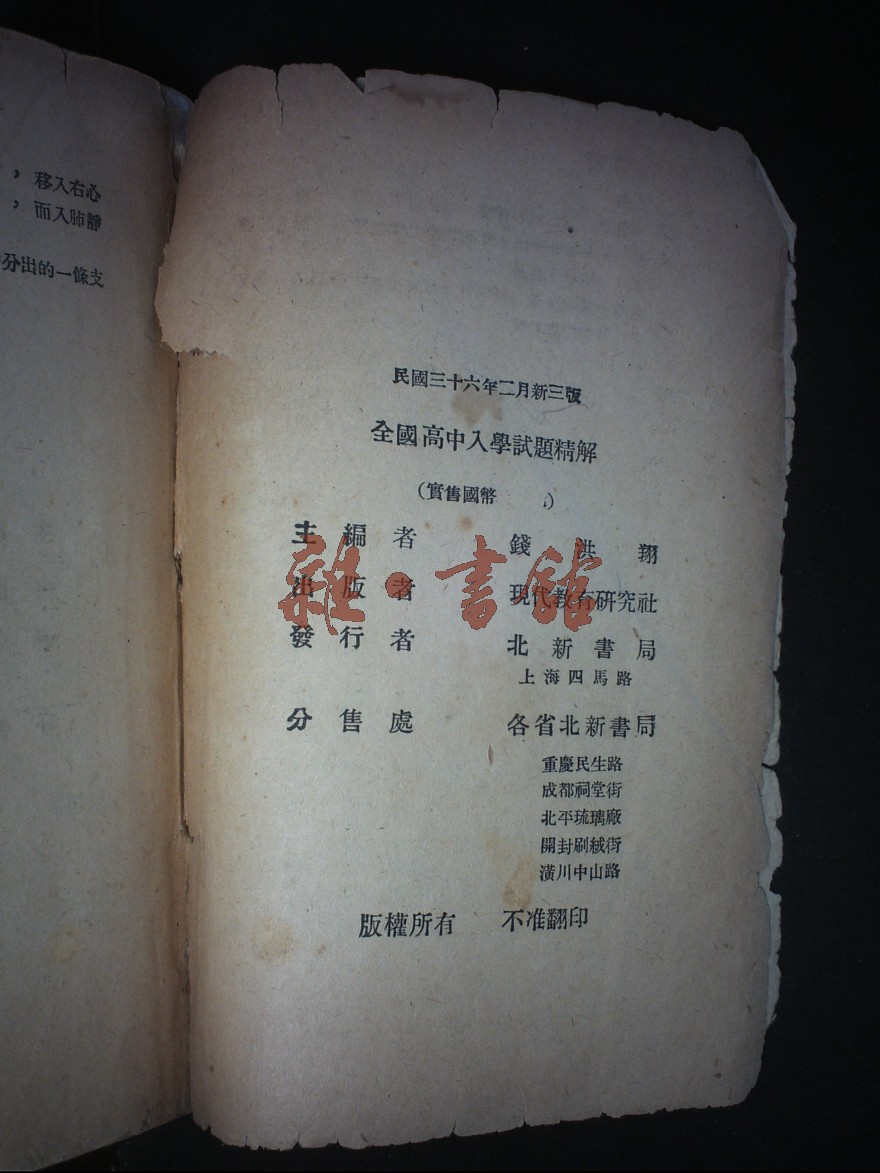 ，移入右心
，而入肺靜
分出的一條支
民國三十六年二月新三版
全國高中入學試題精解
（實售國幣　　）
主編者　錢洪翔
出版者　現代教育研究社
發行者　北新書局
上海四馬路
分售處　各省北新書局
重慶民生路
成都祠堂街
北平琉璃廠
開封刷絨街
潢川中山路
版權所有　不准翻印
雜·書館